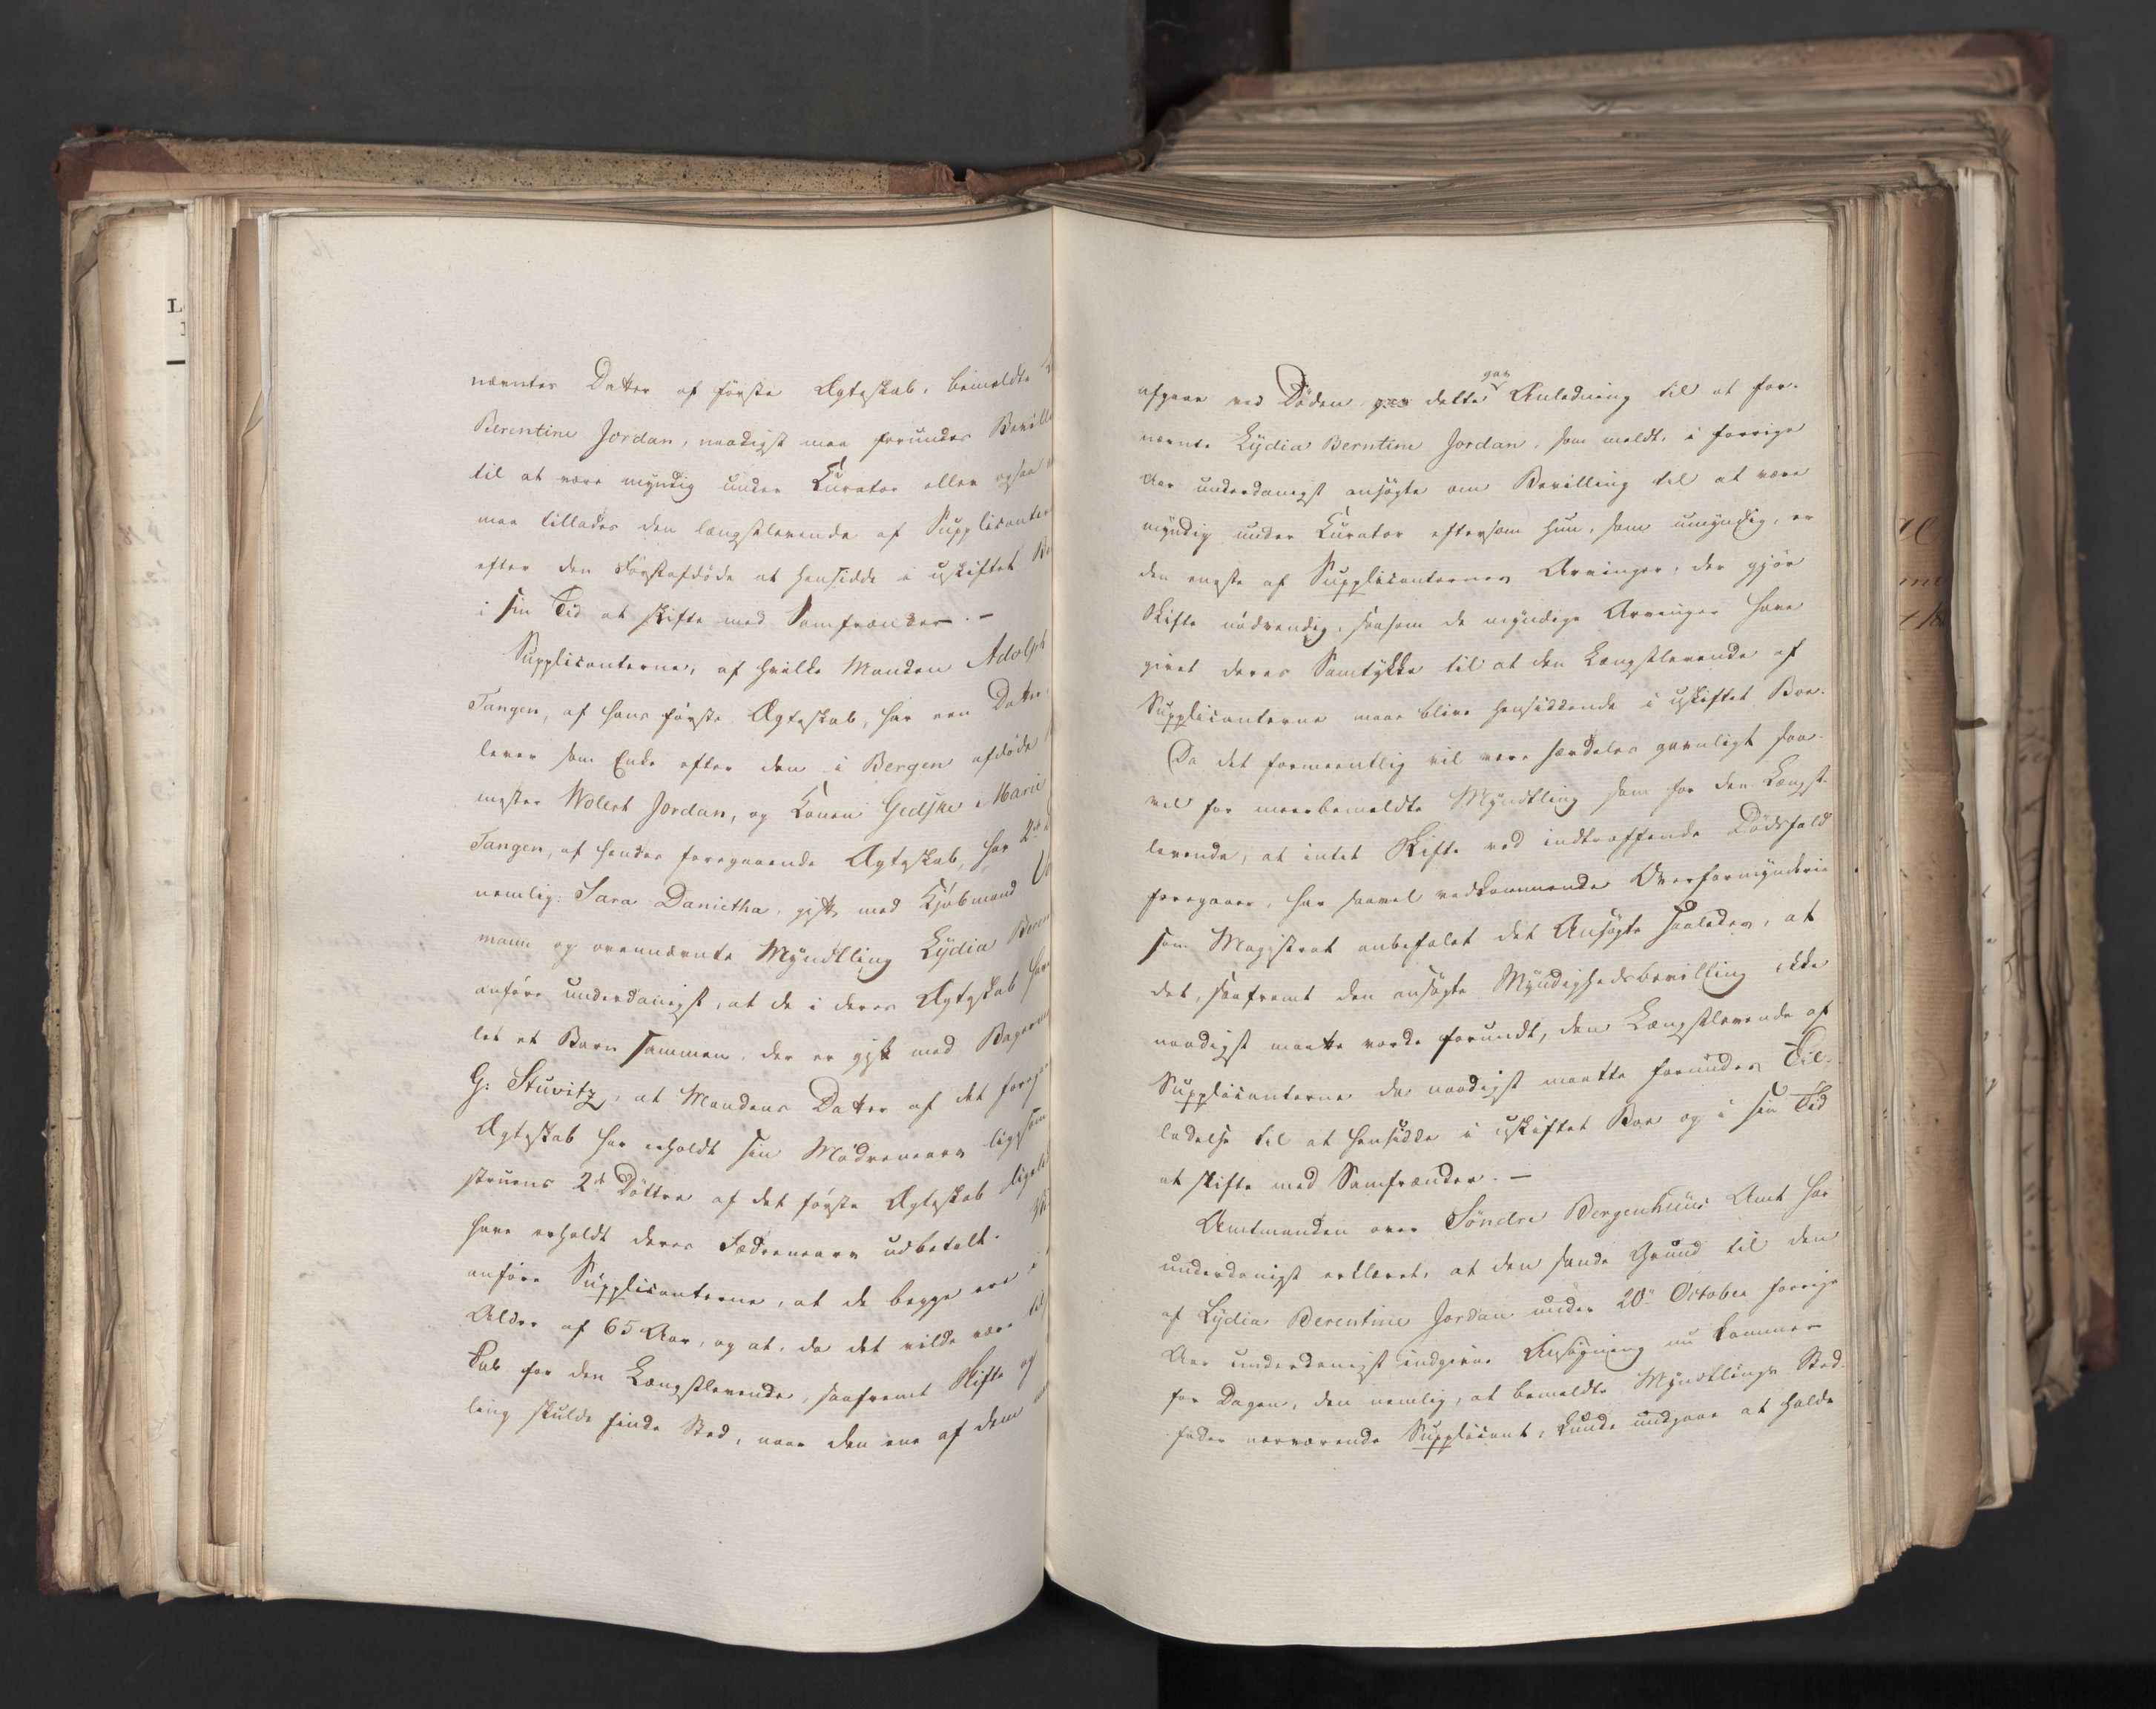 nævntes Datter af første Ægteskab, bemeldte
Berentine Jordan, naadigst maa forundes Bevill
til at være myndig under Curator eller ogsaa
maa tillades den længstlevende af Supplicanter
efter den Førstafdøde at hensidde i uskiftet Bo
i sin Tid at skifte med Samfrænder. –
Supplicanterne, af hvilke Manden Adolph
Tangen, af hans første Ægteskab, har een Datter,
lever som Enke efter den i Bergen afdøde
mester Wolert Jordan, og Konen Gedske Marie
Tangen, af hendes foregaaende Ægteskab, har 2de
nemlig: Sara Danietha, gift med Kjøbmand
mann og ovennævnte Myndtling Lydia Beren
anføre underdanigst, at de i deres Ægteskab have
let et Barn sammen, der er gift med Bagerm
G: Stuvitz, at Mandens Datter af det forega
Ægteskab har erholdt sin Mødrenearv ligesom
struens 2de Døttre af det første Ægteskab ligele
have erholdt deres Fædrenearv udbetalt.
anføre Supplicanterne, at de begge ere i
Alder af 65 Aar, og at, da det vilde være til
Tab for den Længstlevende, saafremt Skifte og
ling skulde finde Sted, naar den ene af dem
afgaar ved Døden, gav dette gav Anledning til at for-
nævnte Lydia Berntine Jordan, som meldt, i forrige
Aar underdanigst ansøgte om Bevilling til at være
myndig under Curator eftersom hun, som umyndig, er
den eneste af Supplicanternes Arvinger, der gjør
Skifte nødvendig, saasom de myndige Arvinger have
givet deres Samtykke til at den Længstlevende af
Supplicanterne maae blive hensiddende i uskiftet Boe.
Da det formeentlig vil være særdeles gavnligt saa-
vel for meerbemeldte Myndtling som for den Længst-
levende, at intet Skifte ved indtræffende Dødsfald
foregaaer, har saavel vedkommende Overformynderie
som Magistrat anbefalet det Ansøgte saaledes, at
det, saafremt den ansøgte Myndighedsbevilling ikke
naadigst maatte vorde forundt, den Længstlevende af
Supplicanterne da naadigst maatte forundes Til-
ladelse til at hensidde i uskiftet Boe og i sin Tid
at skifte med Samfrænder. –
Amtmanden over Søndre Bergenhuus Amt har
underdanigst erklæret, at den sande Grund til den
af Lydia Berentine Jordan under 20de October forrige
Aar underdanigst indgivne Ansøgning nu kommer
for Dagen, den nemlig, at bemeldte Myndtlings Sted-
fader nærværende Supplicant, kunde undgaae at holde